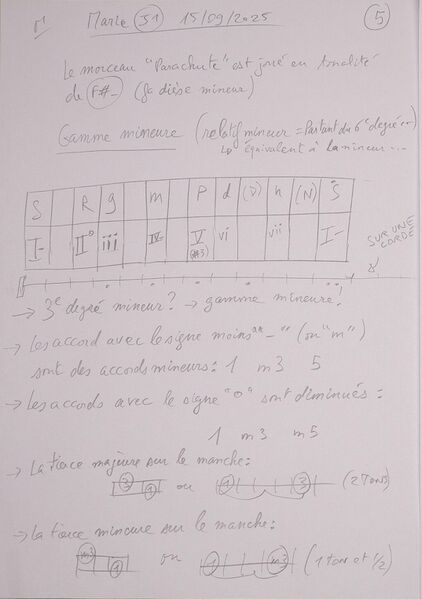 Marie 31 15/09/2025 5
Le morceau "Parachute" est joué en tonalité
de F#- (fa dièse mineur)
Gamme mineure (relatif mineur = Partant du 6e degré
équivalent à la mineur ...
S R g m P d (D) h (N) S
I- II° iii IV- V vi vii I-
SUR UNE
CORDE
→ 3e degré mineur? → gamme mineure!
→ Les accord avec le signe moins "-" (ou "m")
sont des accords mineurs: 1 m3 5
→ Les accords avec le signe "o" sont diminués :
1 m3 m5
→ La tierce majeure sur le manche:
3 1 ou 1 3 (2 Tons)
→ La tierce mineure sur le manche:
m3 1 ou 1 m3 (1 ton et 1/2)